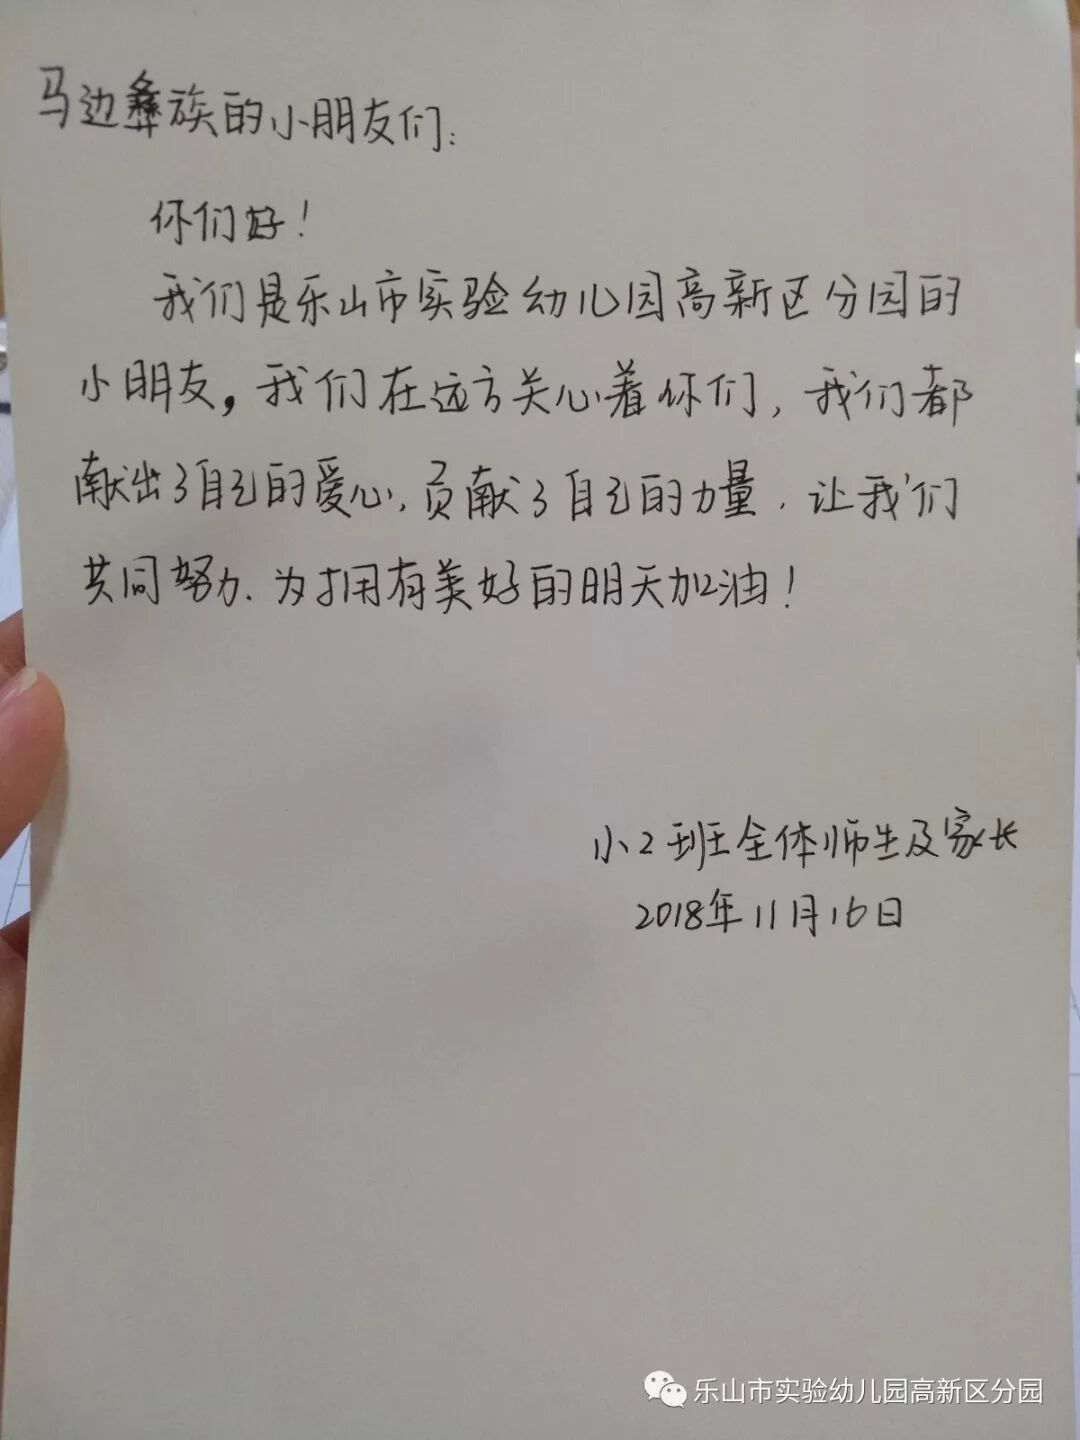 马边彝族的小朋友们：
你们好！
我们是乐山市实验幼儿园高新区分园的
小朋友，我们在远方关心着你们，我们都
献出了自己的爱心，贡献了自己的力量，让我们
共同努力、为拥有美好的明天加油！
小2班全体师生及家长
2018年11月16日
乐山市实验幼儿园高新区分园